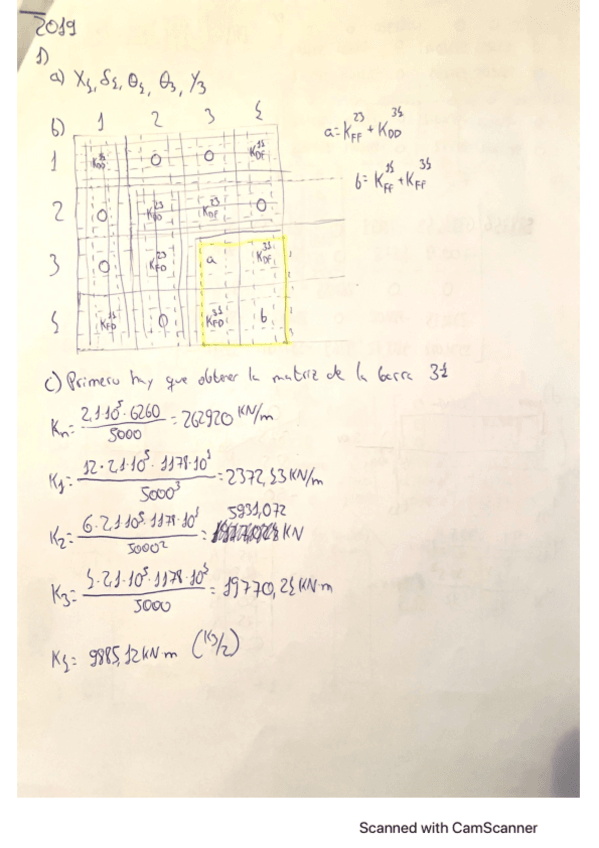 2019
1)
a) X4, δ4, θ4, θ3, Y3
b) 1 2 3 4
a = K_FF^23 + K_DD^34
b = K_FF^14 + K_FF^34
1 K_DD^14 0 0 K_DF^14
2 0 K_DD^23 K_DF^23 0
3 0 K_FD^23 a K_DF^34
4 K_FD^14 0 K_FD^34 b
c) Primero hay que obtener la matriz de la barra 34
Kn = 2,1·10^5·6260 / 5000 = 262920 KN/m
K1 = 12·2,1·10^5·1178·10^4 / 5000^3 = 2372,43 KN/m
K2 = 6·2,1·10^5·1178·10^4 / 5000^2 = 5931,072 KN
K3 = 4·2,1·10^5·1178·10^4 / 5000 = 19770,24 KN·m
K4 = 9885,12 KN·m (K3/2)
Scanned with CamScanner